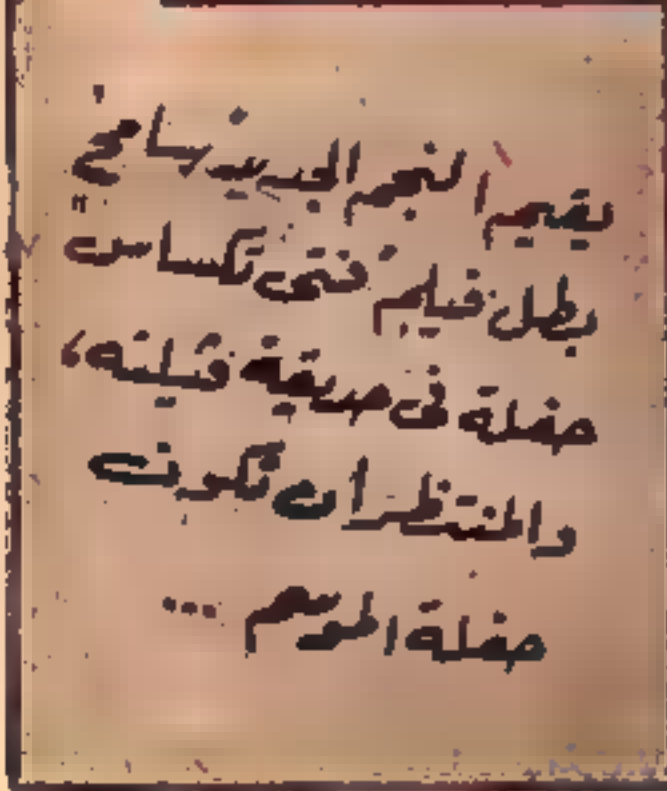 يقيم النجم الجديد سامح
بطل فيلم "فتى تكساس"
حفلة فى حديقة فيلته،
والمنتظر ان تكون
حفلة الموسم ...